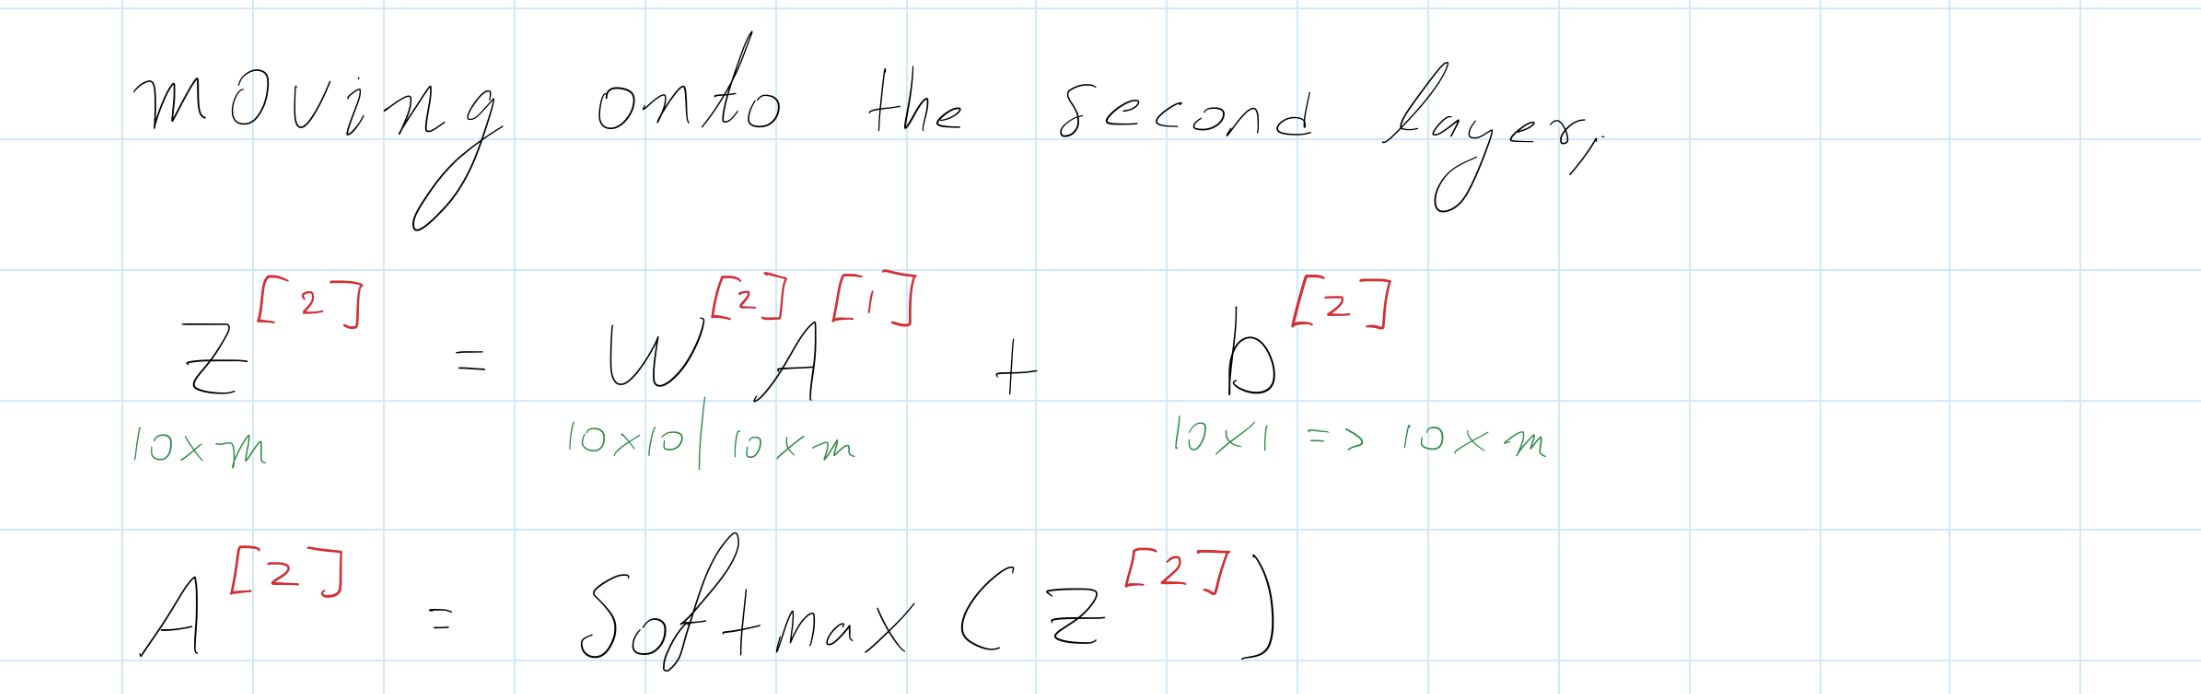 moving onto the second layer,
Z^[2] = W^[2] A^[1] + b^[2]
10 x m 10 x 10 | 10 x m 10 x 1 => 10 x m
A^[2] = Softmax (Z^[2])